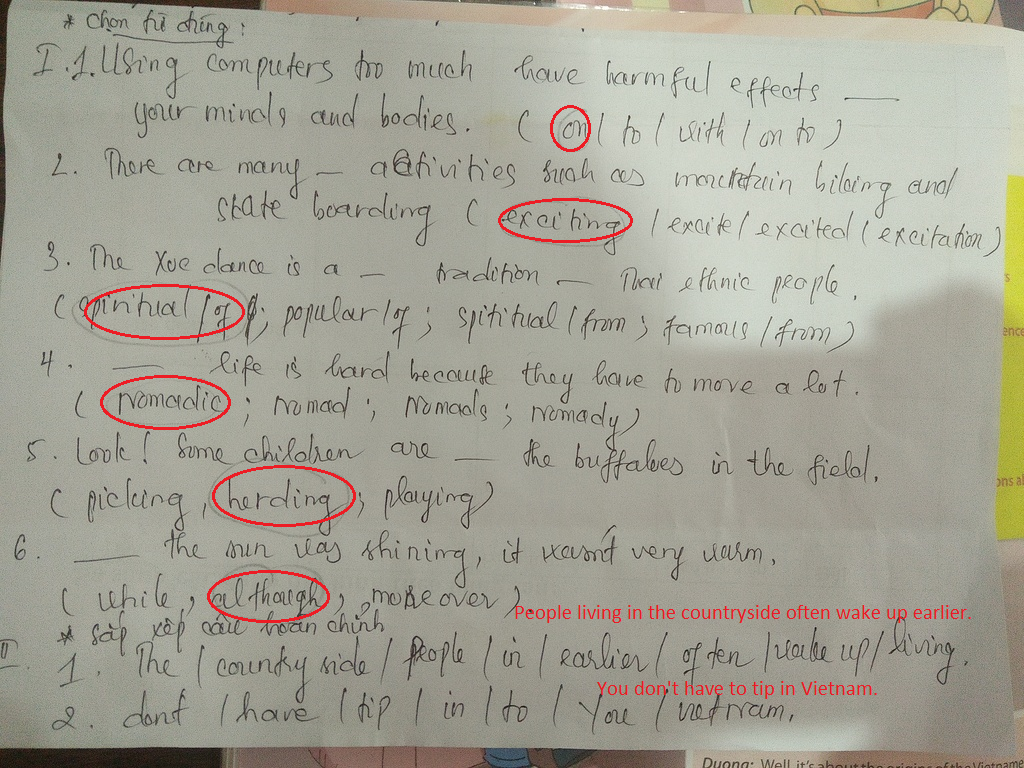 * Chọn từ đúng:
I.1. Using computers too much have harmful effects __
your minds and bodies. ( on / to / with / on to )
2. There are many _ activities such as mountain biking and
skate boarding ( exciting / excite / excited ( excitation )
3. The Xoe dance is a _ tradition _ Thai ethnic people.
( spiritual / of ; popular / of ; spititual / from ; famous / from )
4. __ life is hard because they have to move a lot.
( Nomadic ; nomad ; nomads ; nomady )
5. Look! Some children are _ the buffaloes in the field.
( picking , herding ; playing )
6. __ the sun was shining, it wasn't very warm.
( while , although , moreover ).
People living in the countryside often wake up earlier.
* sắp xếp câu hoàn chỉnh
II. 1. The / country side / people / in / earlier / often / wake up / living.
You don't have to tip in Vietnam.
2. dont / have / tip / in / to / You / vietnam.
Duong: Well, it's about the origins of the Vietname
ence
ons al